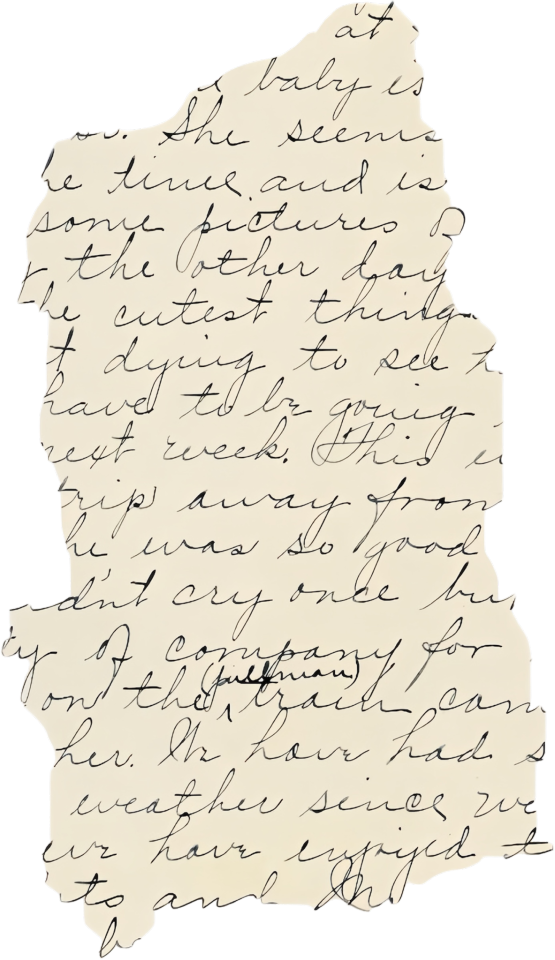 at
baby is
She seems
he time and is
some pictures of
the other day
he cutest things
t dying to see h
have to be going
next week. This
trip away from
he was so good
dn't cry once but
ty of company for
(pullman)
on the train cam
her. We have had s
weather since we
we have enjoyed t
ts and th
b